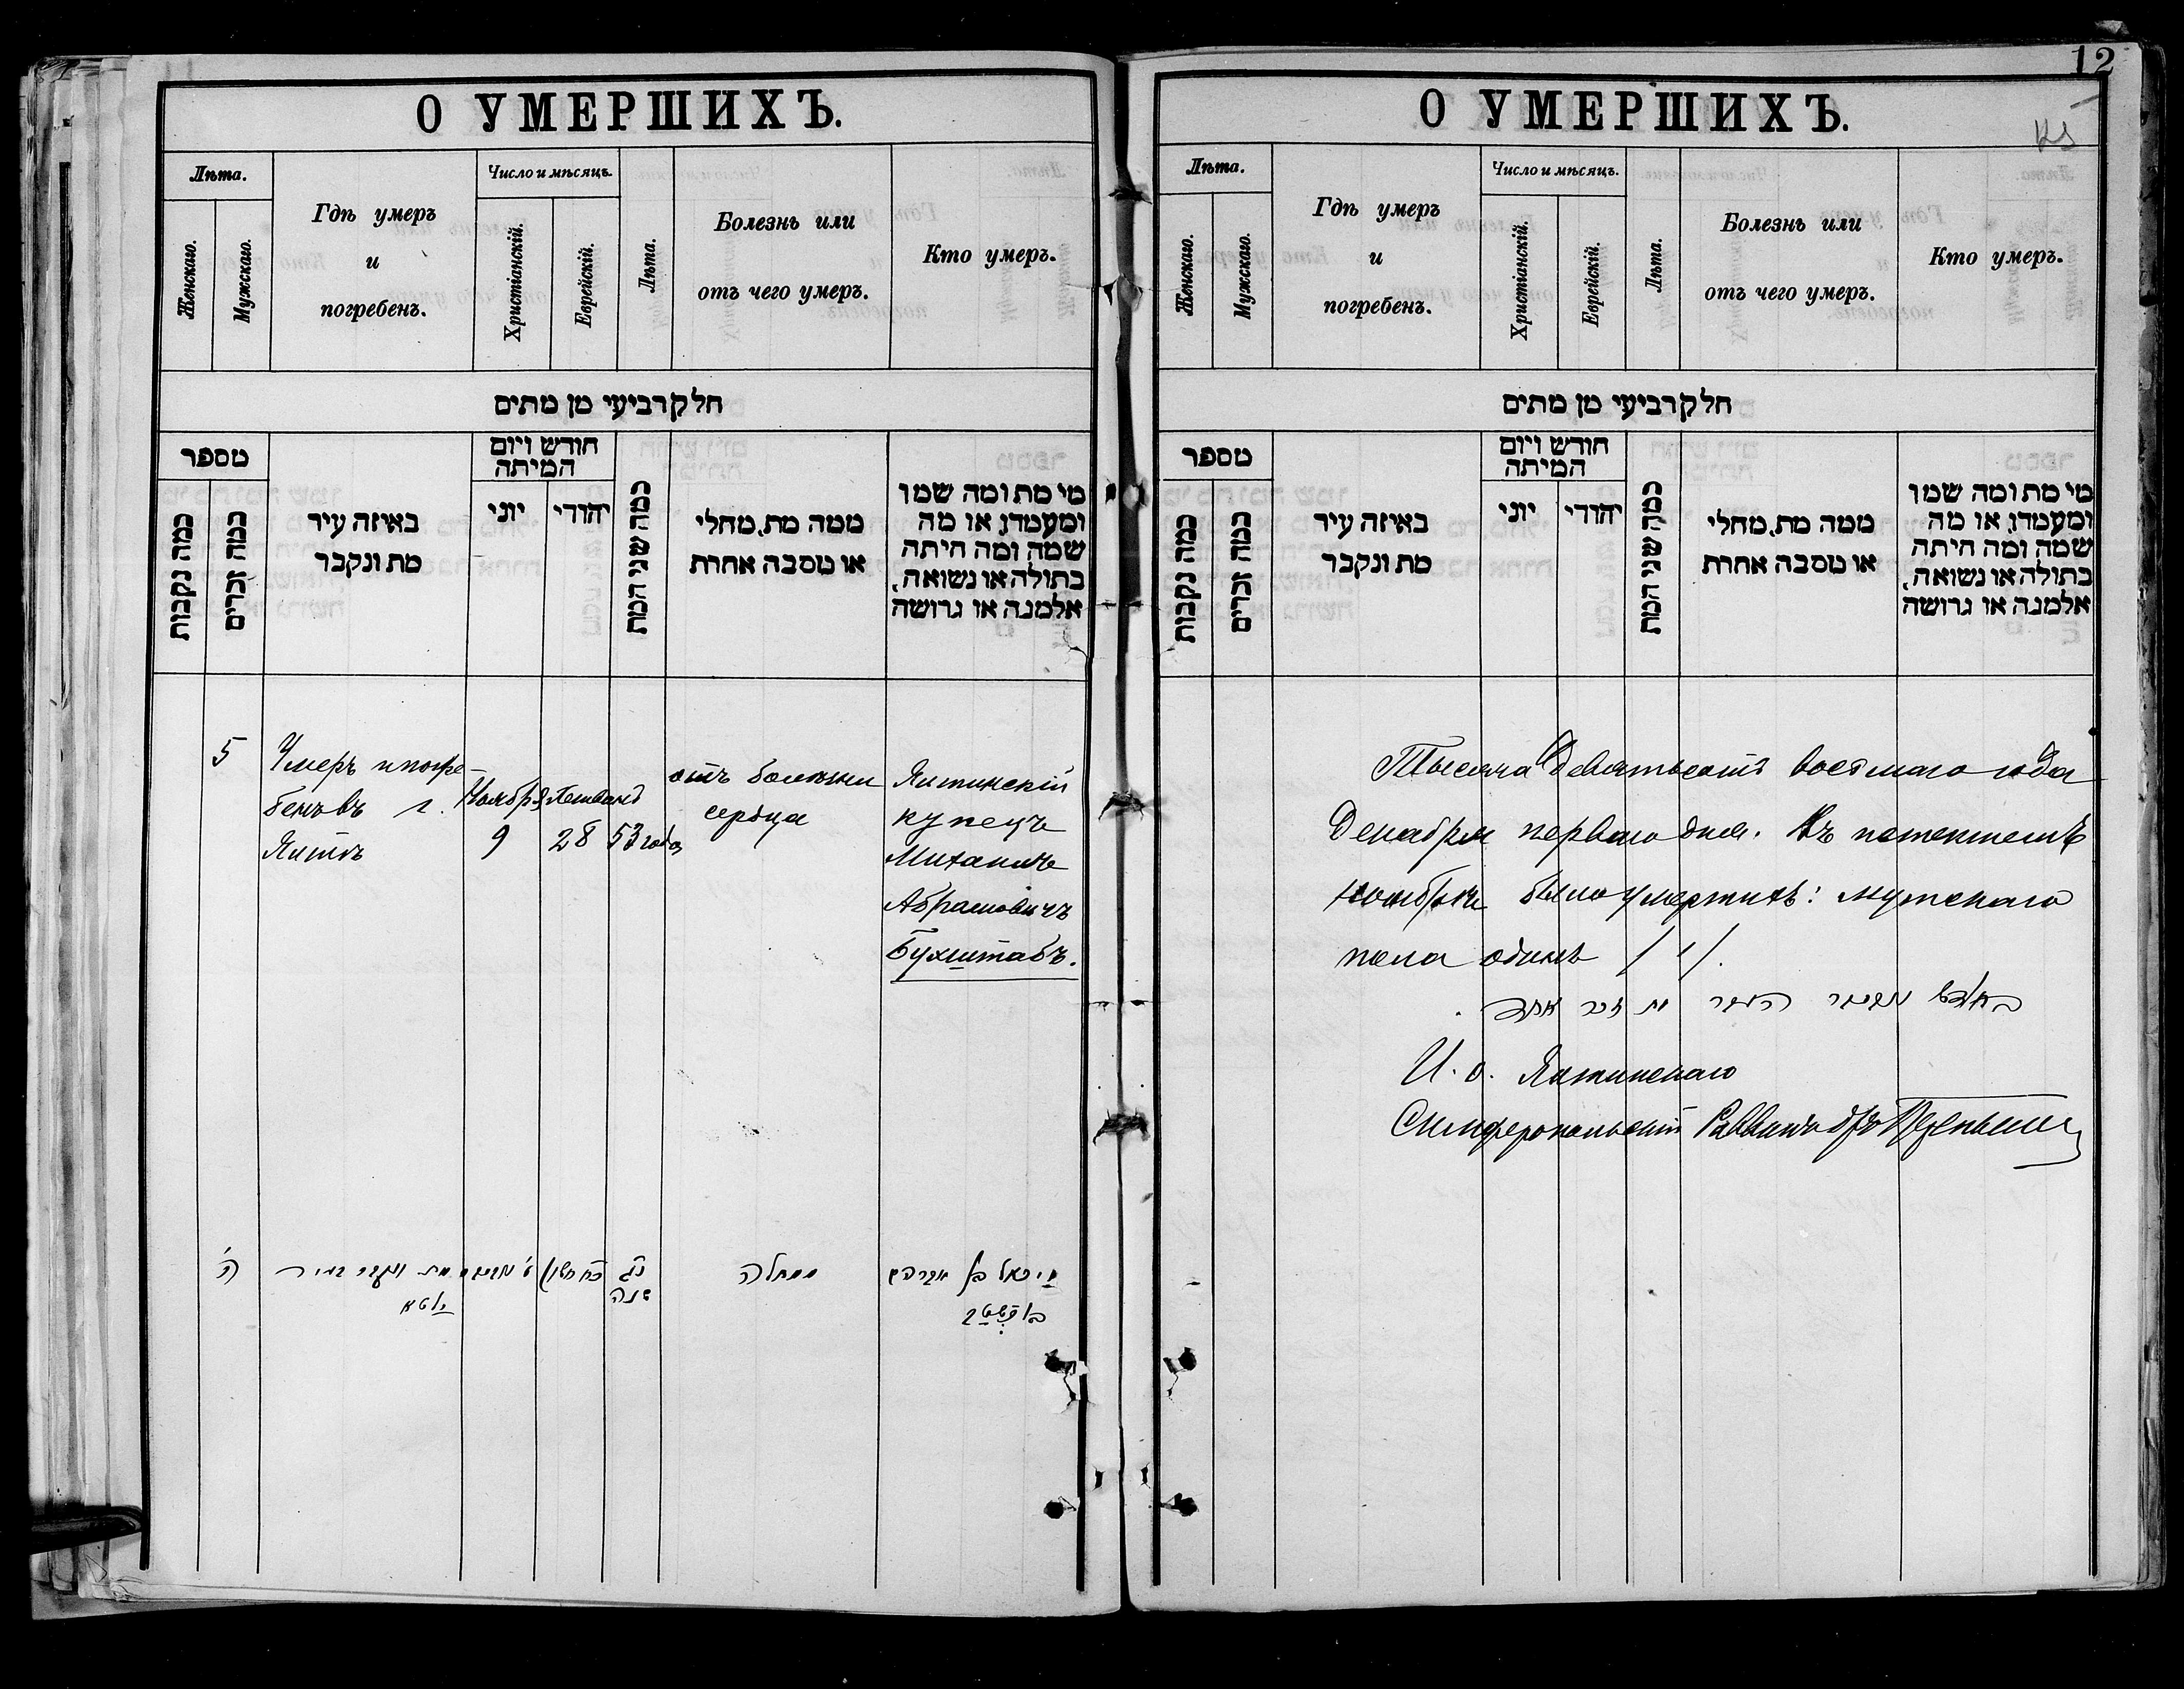 12
О УМЕРШИХЪ.
Лѣта.
Женскаго.
Мужскаго.
Гдѣ умеръ
и
погребенъ.
Число и мѣсяцъ.
Христіанскій.
Еврейскій.
Лѣта.
Болезнь или
отъ чего умеръ.
Кто умеръ.
חלק רביעי מן מתים
מספר
כמה נקבות
כמה זכרים
באיזה עיר
מת ונקבר
חודש ויום
המיתה
יוני
יהודי
כמה שני המת
ממה מת, מחלי
או מסבה אחרת
מי מת ומה שמו
ומעמדו, או מה
שמה ומה היתה
בתולה או נשואה,
אלמנה או גרושה
5
Умеръ и погре-
бенъ въ г.
Ялтѣ
Ноября
9
28
53 года
отъ болезни
сердца
Ялтинскій
купецъ
Михаилъ
Абрамовичъ
Бухштабъ.
ה'
מת ונקבר בעיר
יאלטא
כ"ח חשון
נ"ג
שנה
ממחלה
מיכאל בן אברהם
בוקשטב
О УМЕРШИХЪ.
Лѣта.
Женскаго.
Мужскаго.
Гдѣ умеръ
и
погребенъ.
Число и мѣсяцъ.
Христіанскій.
Еврейскій.
Лѣта.
Болезнь или
отъ чего умеръ.
Кто умеръ.
חלק רביעי מן מתים
מספר
כמה נקבות
כמה זכרים
באיזה עיר
מת ונקבר
חודש ויום
המיתה
יוני
יהודי
כמה שני המת
ממה מת, מחלי
או מסבה אחרת
מי מת ומה שמו
ומעמדו, או מה
שמה ומה היתה
בתולה או נשואה,
אלמנה או גרושה
Тысяча девятьсотъ восьмаго года
Декабря перваго дня. Въ истекшемъ
ноябрѣ было умершихъ: мужскаго
пола одинъ /1/.
בחודש נאיאבר העבר מת זכר אחד.
И. о. Ялтинскаго
Симферопольскій Раввинъ